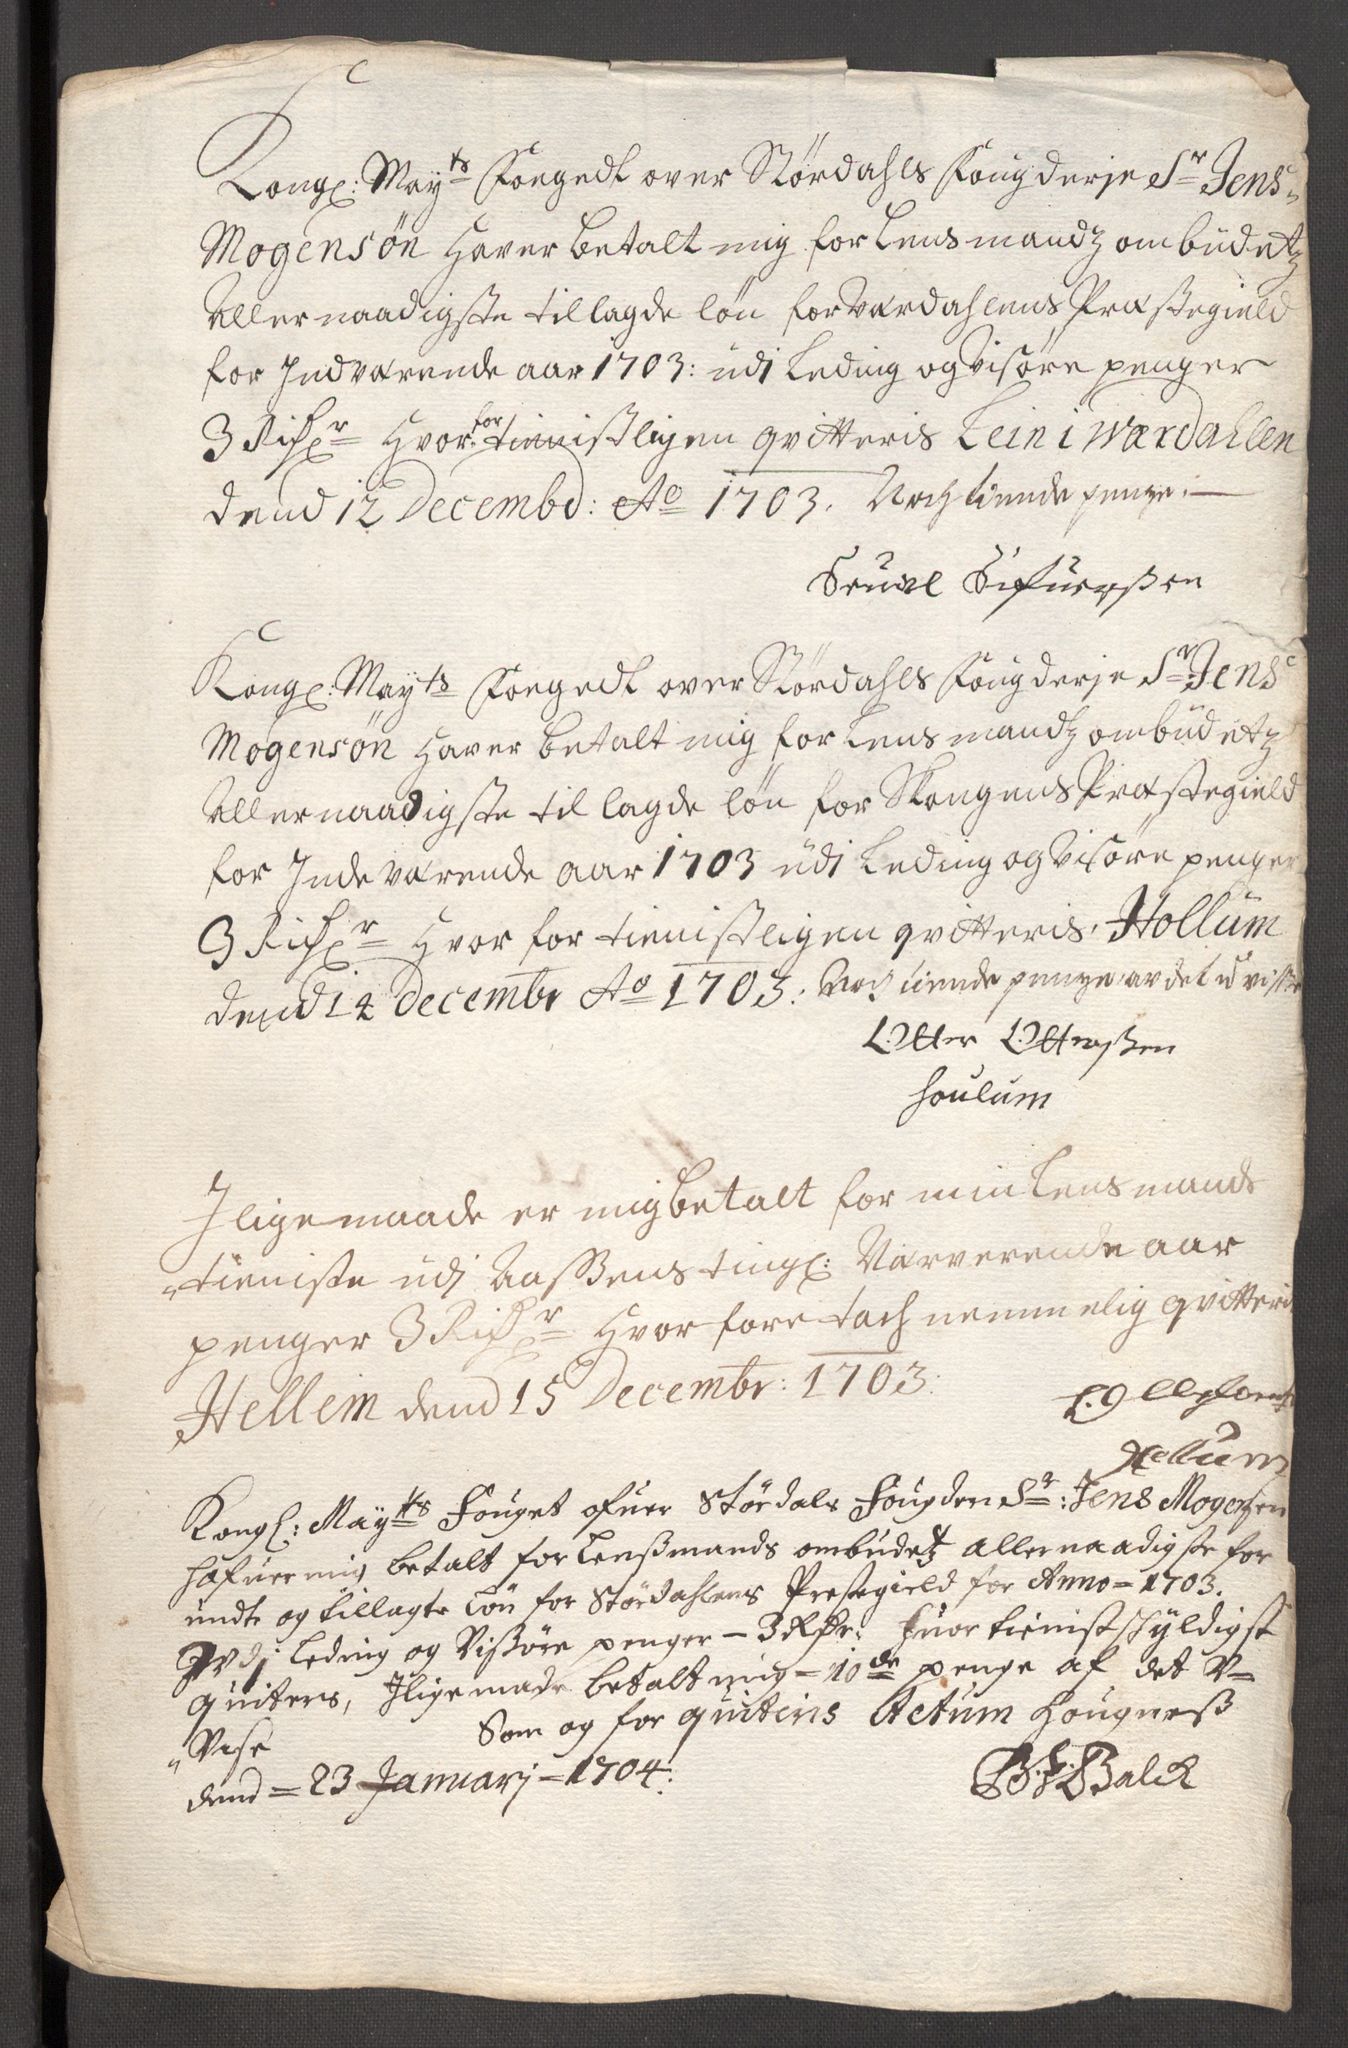 Kongl: Mayts Foegedt over Størdahls Fougderje Sr Jens
Mogensøn Haver betalt mig for Lensmandz ombudetz
Allernaadigste tillagde løn for Værdahlens Præstegield
for Indværende aar 1703: udj Leding og Visøre penger
3 Rixdr Hvor for tienistligen qvitteris Lein i Wærdahlen
dend 12 Decembr: Ao 1703. Noch tiende penge.
Sifuersßen
Kongl: Mayts Foegedt over Størdahls Fougderje Sr Jens
Mogensøn Haver betalt mig for Lensmandz ombudetz
Allernaadigste tillagde løn for Skongens Præstegield
for Inde værende aar 1703 udj Leding og Visøre penger
3 Rixdr Hvor for tienistligen qvitteris. Hollum
dend 14 Decembr Ao 1703: Noch tiende penge av det u visse
Otter Ottersßen
Houlum
Jlige maade er mig betalt for min Lensmands
tieniste udj Aaßens tingl: Nærverende aar
penger 3 Rixdr Hvor fore tachnemmelig qvitteris
Hellem dend 15 Decembr: 1703:
Hellum
Kongl: Mayts Fouget ofuer Stördals Fougderi Sr: Jens Mogensen
hafuer mig betalt for Lenßmands ombudetz allernaadigste for
undte og tillagte Lön for Stördahlens Prestegield for Anno = 1703.
Jvdj Leding og Vißöre penger = 3 Rdr: Huor tienistschyldigst
quiteris, Jligemade betalt mig = 10de penge af det V=
Vise Som og for quiteris Actum Hougneß
dend = 23 Januarj = 1704:
Balck